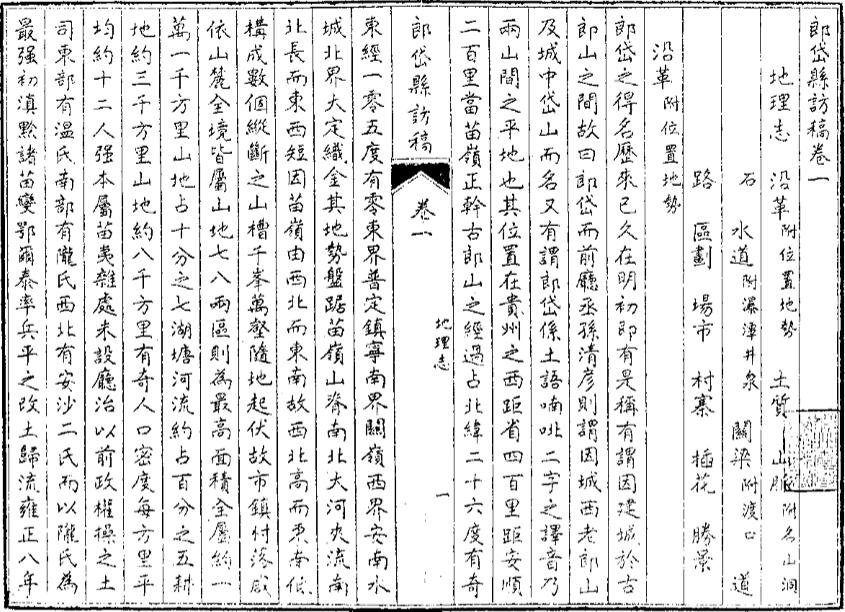 郎岱縣訪稿卷一
地理志 沿革附位置地勢 土質 山脈附名山洞
石 水道附瀑潭井泉 關梁附渡口 道
路 區劃 場市 村寨 插花 勝景
沿革附位置地勢
郎岱之得名歷來已久在明初即有是稱有謂因建城於古
郎山之間故曰郎岱而前廳丞孫清彦則謂因城西老郎山
及城中岱山而名又有謂郎岱係土語喃吡二字之譯音乃
兩山間之平地也其位置在貴州之西距省四百里距安順
二百里當苗嶺正幹古郎山之經過占北緯二十六度有奇
郎岱縣訪稿 卷一 地理志 一
東經一零五度有零東界普定鎮寧南界關嶺西界安南水
城北界大定織金其地勢盤踞苗嶺山脊南北大河夾流南
北長而東西短因苗嶺由西北而東南故西北高而東南低
構成數個縱斷之山槽千峯萬壑隨地起伏故市鎮村落咸
依山麓全境皆屬山地七八兩區則為最高面積全屬約一
萬一千方里山地占十分之七湖塘河流約占百分之五耕
地約三千方里山地約八千方里有奇人口密度每方里平
均約十二人强本屬苗夷雜處未設廳治以前政權操之土
司東部有溫氏南部有隴氏西北有安沙二氏而以隴氏為
最强初滇黔諸苗變鄂爾泰率兵平之改土歸流雍正八年